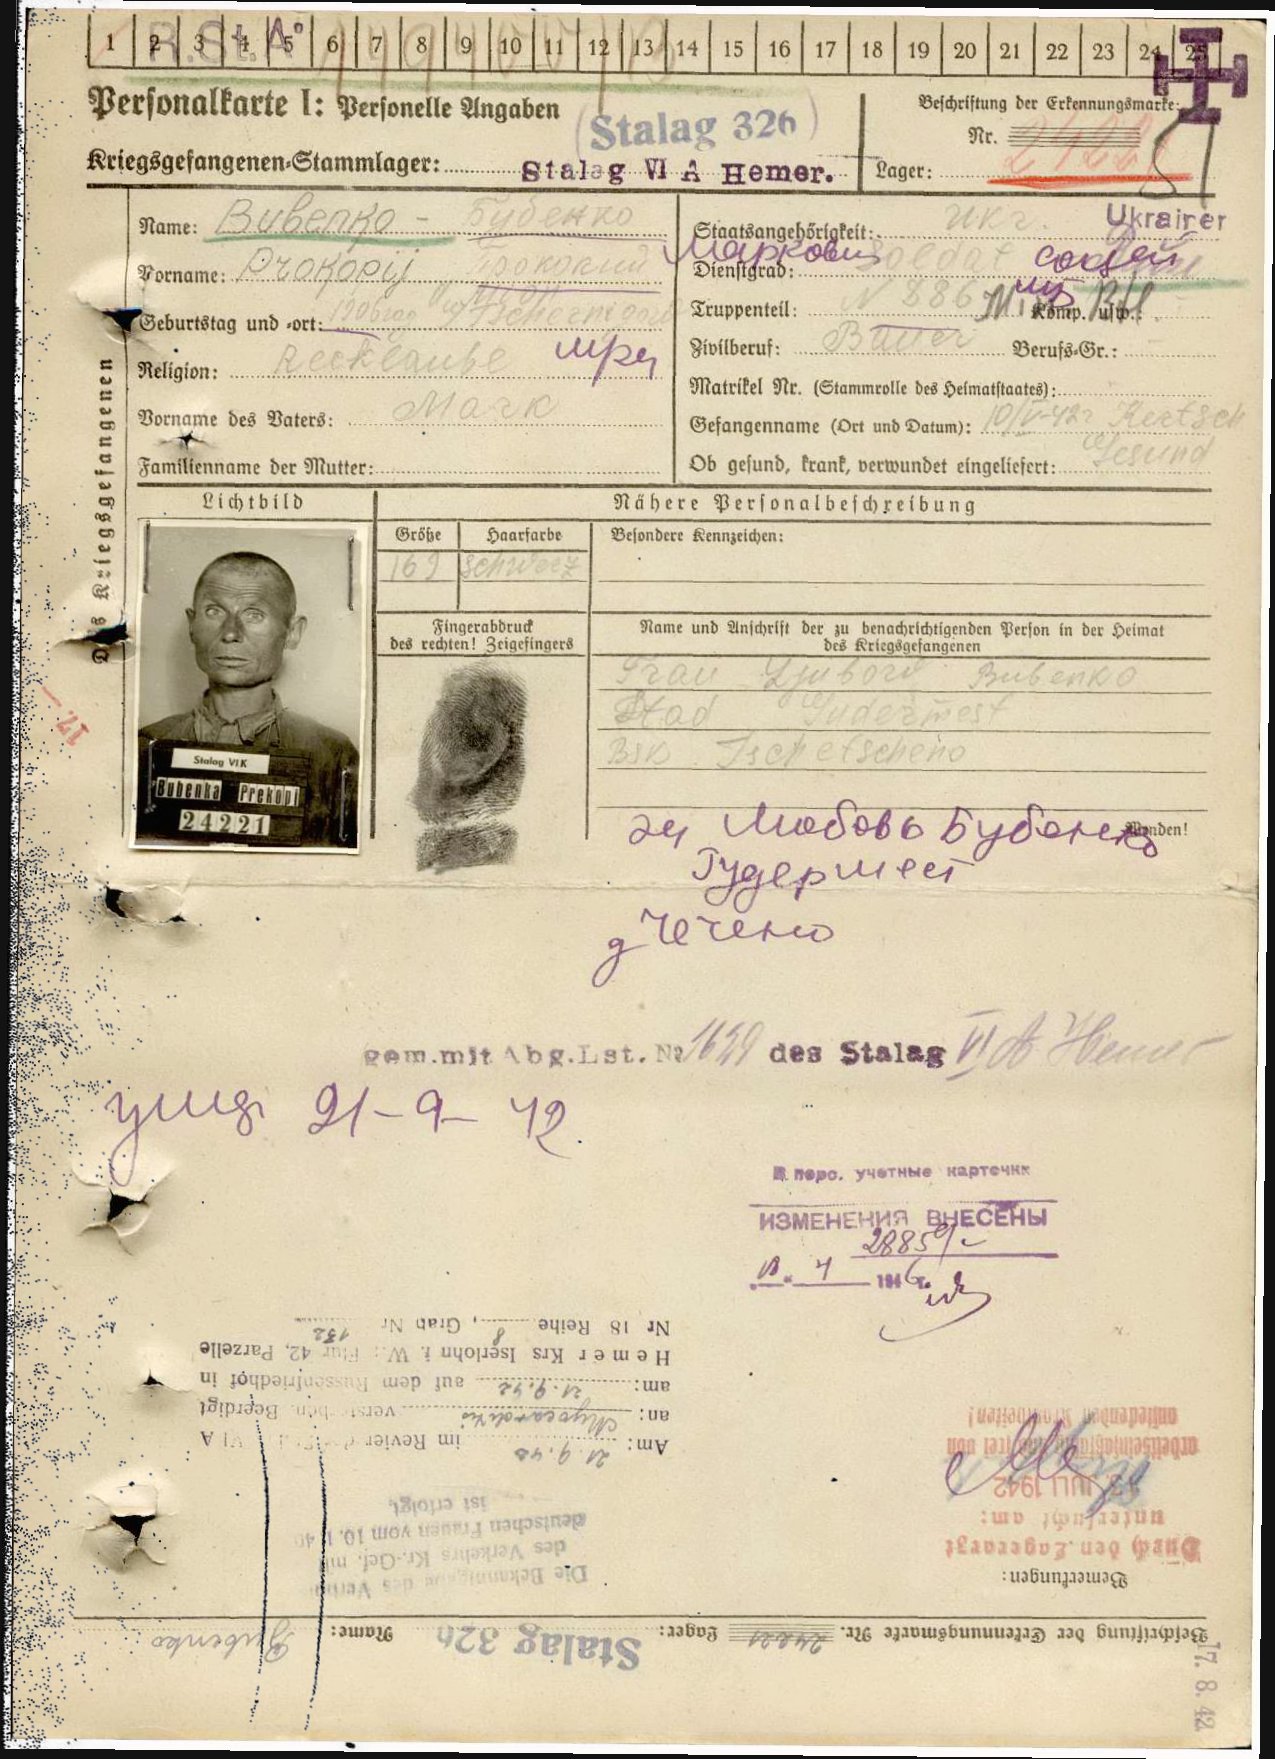 1 2 3 4 5 6 7 8 9 10 11 12 13 14 15 16 17 18 19 20 21 22 23 24 25
Personalkarte I: Personelle Angaben
Stalag 326
Beschriftung der Erkennungsmarke:
Nr. 24221
Kriegsgefangenen-Stammlager: Stalag VI A Hemer.
Lager:
Name: Bubenko - Бубенко
Staatsangehörigkeit: Ukr. Ukrainer
Vorname: Prokopij Прокопий Маркович
Dienstgrad: Soldat солдат
Geburtstag und -ort: Tschernigow
Truppenteil: Komp. usw.:
Religion: Rechtglaube
Zivilberuf: Bauer Berufs-Gr.: -
Matrikel Nr. (Stammrolle des Heimatstaates):
Vorname des Vaters: Mark
Gefangenname (Ort und Datum): 10/V-42 Kertsch
Familienname der Mutter:
Ob gesund, krank, verwundet eingeliefert: Gesund
Des Kriegsgefangenen
Lichtbild
Nähere Personalbeschreibung
Größe
Haarfarbe
Besondere Kennzeichen:
169 schwarz
Fingerabdruck
des rechten! Zeigefingers
Name und Anschrift der zu benachrichtigenden Person in der Heimat
des Kriegsgefangenen
Frau Ljubow Bubenko
Stad Gudermest
Tschetscheno
Stalag VI K
Bubenka Prekopi
24221
Wenden!
Любовь Бубенко
Гудермест
д Чечено
17.
gem. mit Abg. Lst. № 1629 des Stalag VI A Hemer
21-9-42
В перс. учетные карточки
ИЗМЕНЕНИЯ ВНЕСЕНЫ
28859
4 1946 г.
Beschriftung der Erkennungsmarke Nr. 24221 Lager: Stalag 326 Name: Bubenko
Bemerkungen:
Durch den Lagerarzt
untersucht am:
JULI 1942
arbeitsfähig und frei von
ansteckenden Krankheiten!
Die Bekanntgabe des Verbots
des Verkehrs Kr.-Gef. mit
deutschen Frauen vom 10.1.40
ist erfolgt.
Am: 21.9.42 im Revier des Stalag VI A
an: Myocarditis verstorben. Beerdigt
am: 21.9.42 auf dem Russenfriedhof in
Hemer Krs Iserlohn i. W.: Flur 42, Parzelle
Nr 18 Reihe 8, Grab Nr 132
17. 8. 42